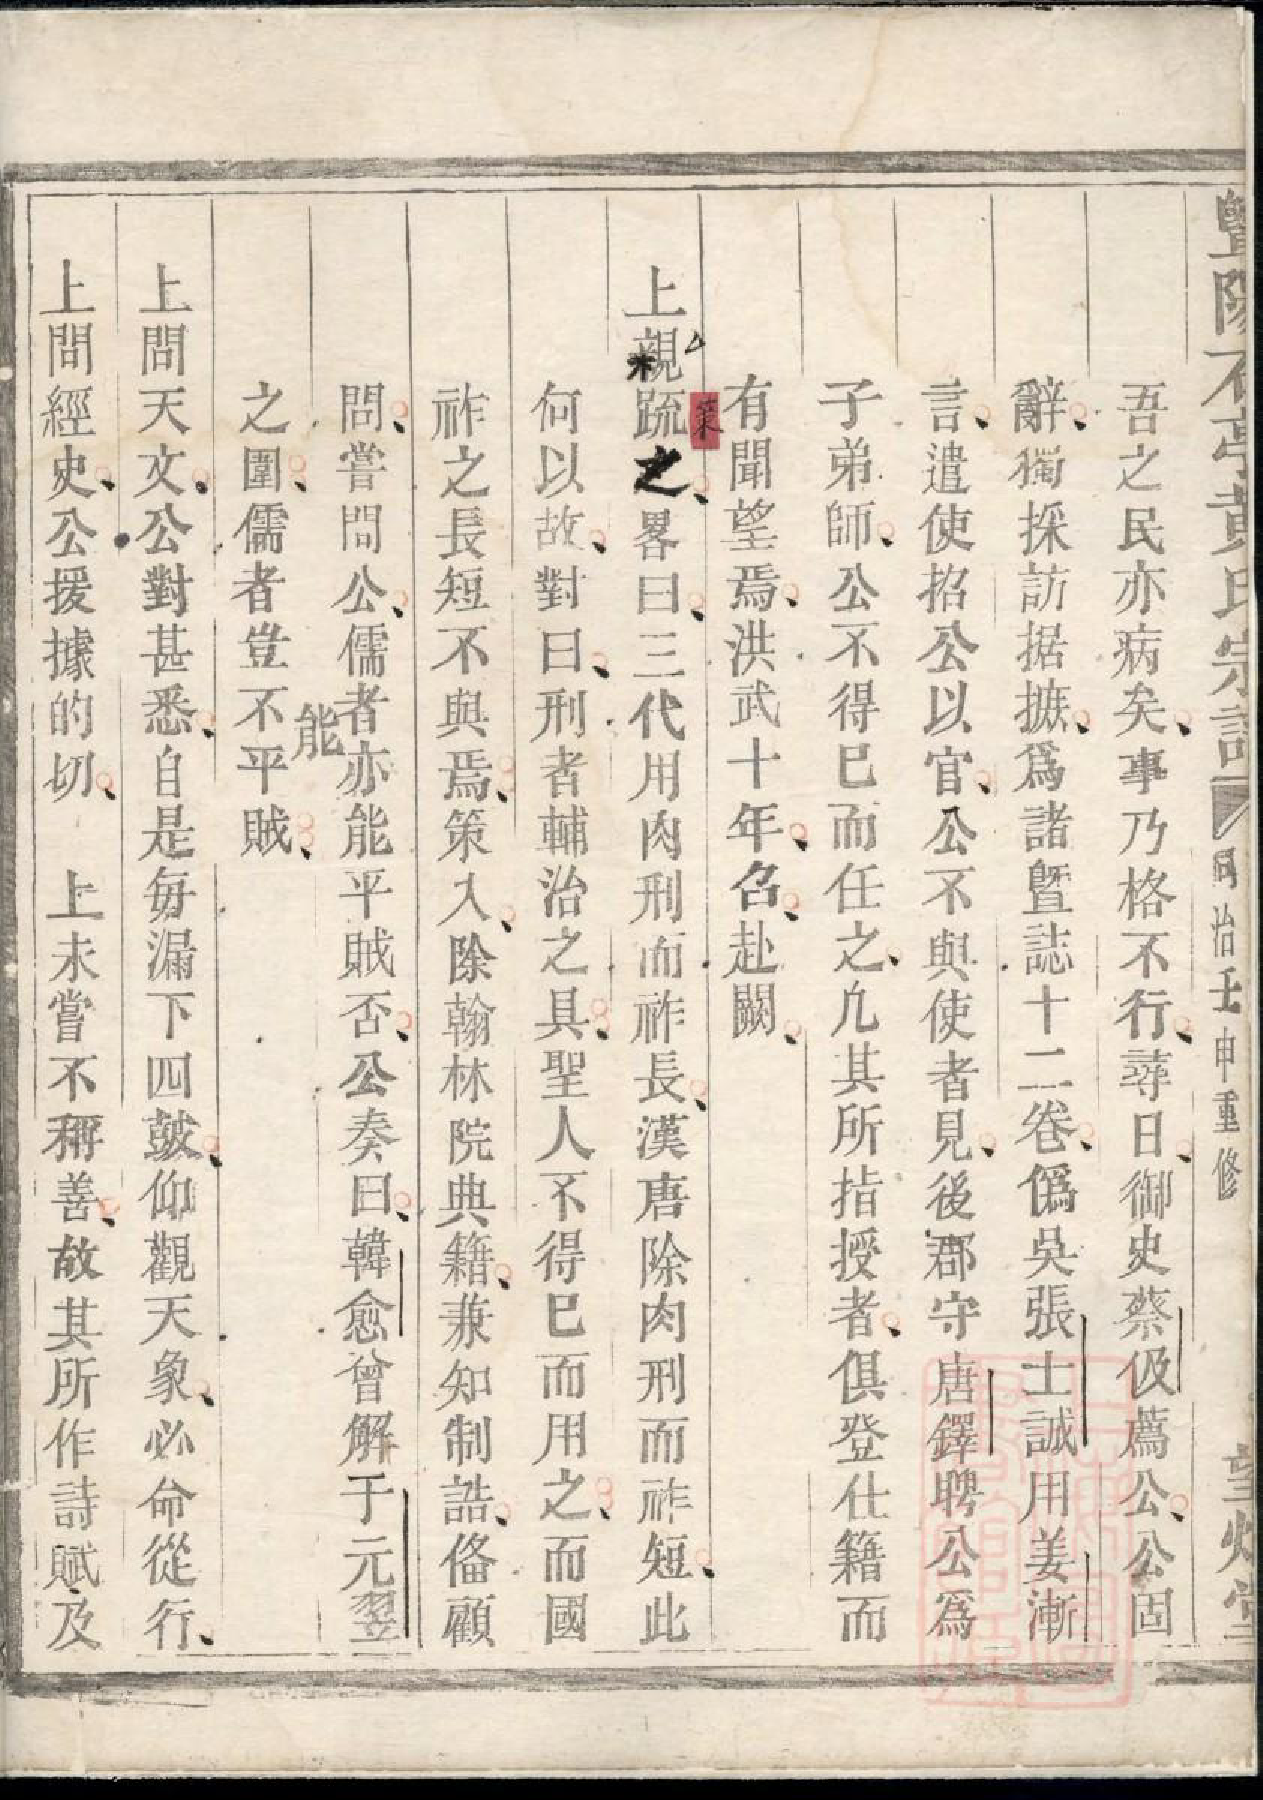 暨陽石亭黄氏宗譜 同治壬申重修 望烟堂
吾之民亦病矣事乃格不行尋日御史蔡伋薦公公固
辭獨採訪据摭爲諸暨誌十二卷僞吳張士誠用姜漸
言遣使招公以官公不與使者見後郡守唐鐸聘公爲
子弟師公不得已而任之凢其所指授者俱登仕籍而
有聞望焉洪武十年召赴闕
上親策疏之畧曰三代用肉刑而祚長漢唐除肉刑而祚短此
何以故對曰刑者輔治之具聖人不得已而用之而國
祚之長短不與焉策入除翰林院典籍兼知制誥俻顧
問嘗問公儒者亦能平賊否公奏曰韓愈曾解于元翌
之圍儒者豈不能平賊
上問天文公對甚悉自是每漏下四皷仰觀天象必命從行
上問經史公援據的切 上未嘗不稱善故其所作詩賦及